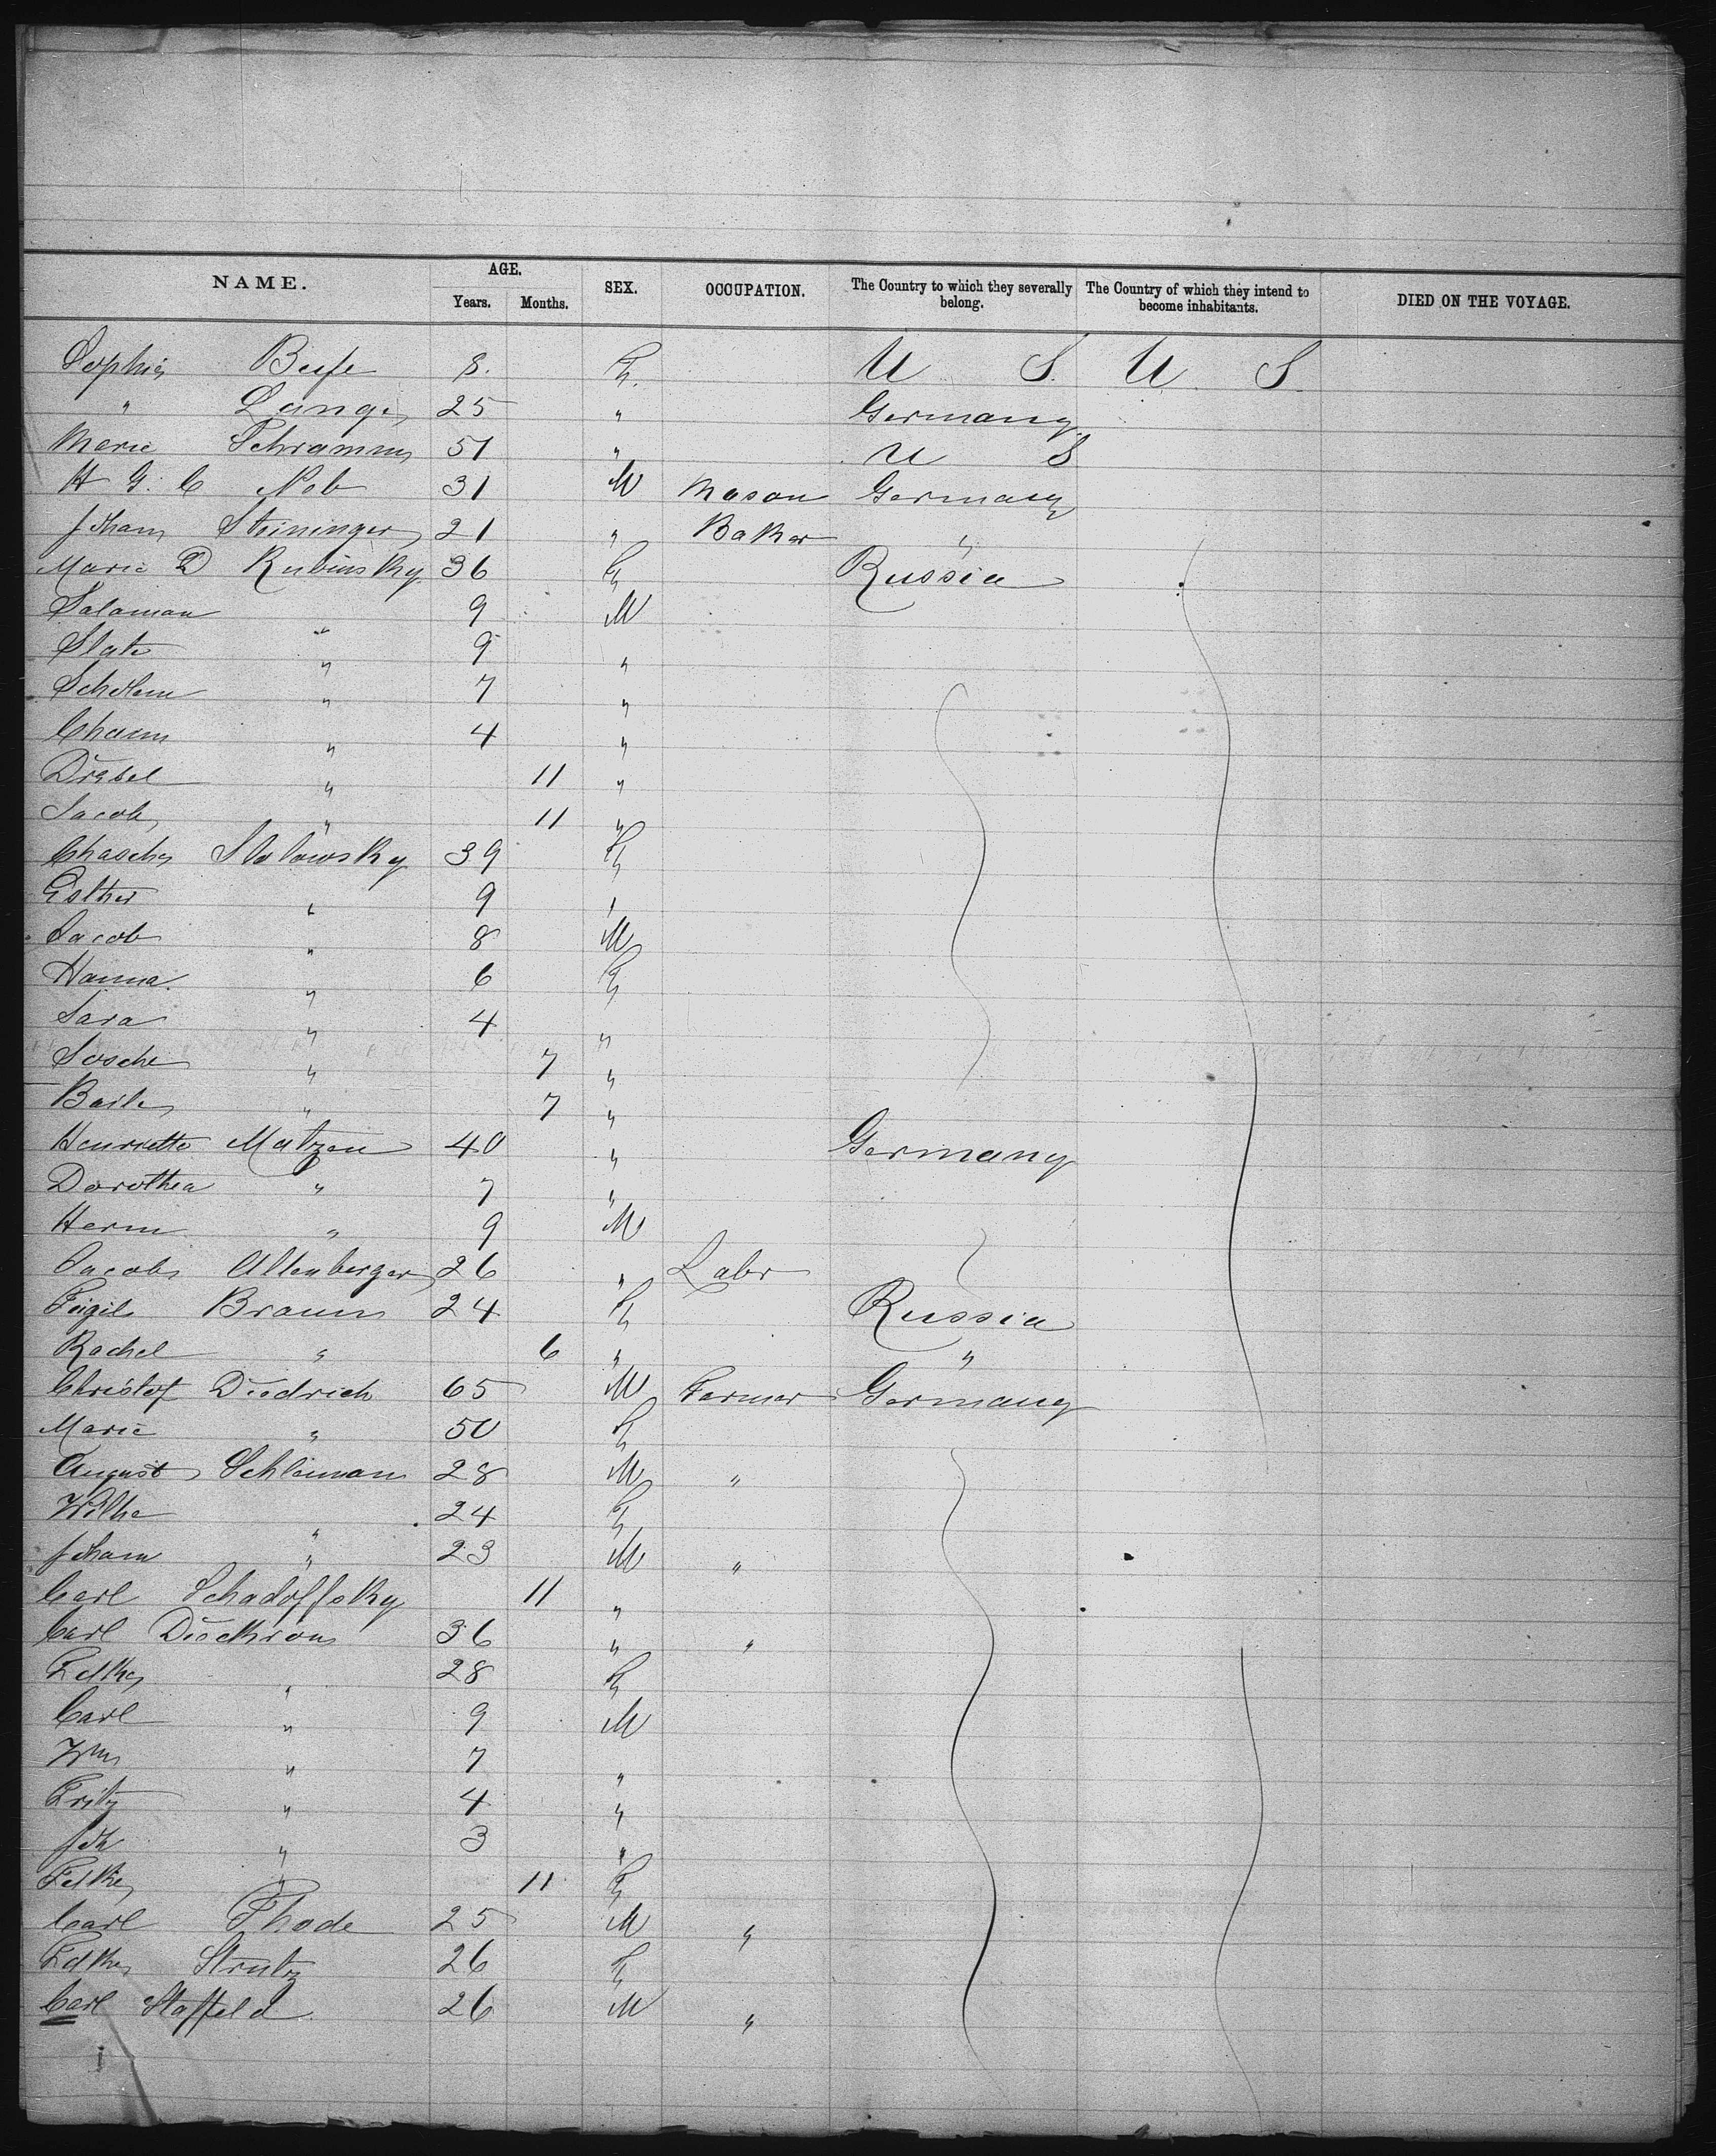 NAME. AGE. SEX. OCCUPATION. The Country to which they severally belong. The Country of which they intend to become inhabitants. DIED ON THE VOYAGE.
Years. Months.
Sophie 8. F. U S. U S.
" Lange 25 " Germany
Marie Schramm 51 " U S
H G. C Nob 31 M Mason Germany
Joham Steininger 21 " Baker "
Marie D Rubinsky 36 F Russia
Salaman " 9 M
Slate " 9 "
Scholem " 7 "
Chaim " 4 "
" 11 "
Jacob " 11 "
Chasche Slolowsky 39 F
Esther " 9 "
Jacob " 8 M
Hanna " 6 F
Sara " 4 "
Sosche " 7 "
Baile " 7 "
Henriette Matzen 40 " Germany
Dorothea " 7 "
Herm " 9 M
Jacob Altenberger 26 " Labr
Feigil Braun 24 F Russia
Rachel " 6 " "
Christof Diedrich 65 M Farmer Germany
Marie " 50 F
August Schliman 28 M "
Wilhe " 24 F
Joham " 23 M "
Carl Schadoffsky 11 "
Carl 36 " "
" 28 F
Carl " 9 M
Wm " 7 "
Fritz " 4 "
Joh " 3 "
" 11 F
Carl Thode 25 M "
Strutz 26 F
Carl Staffeld 26 M "